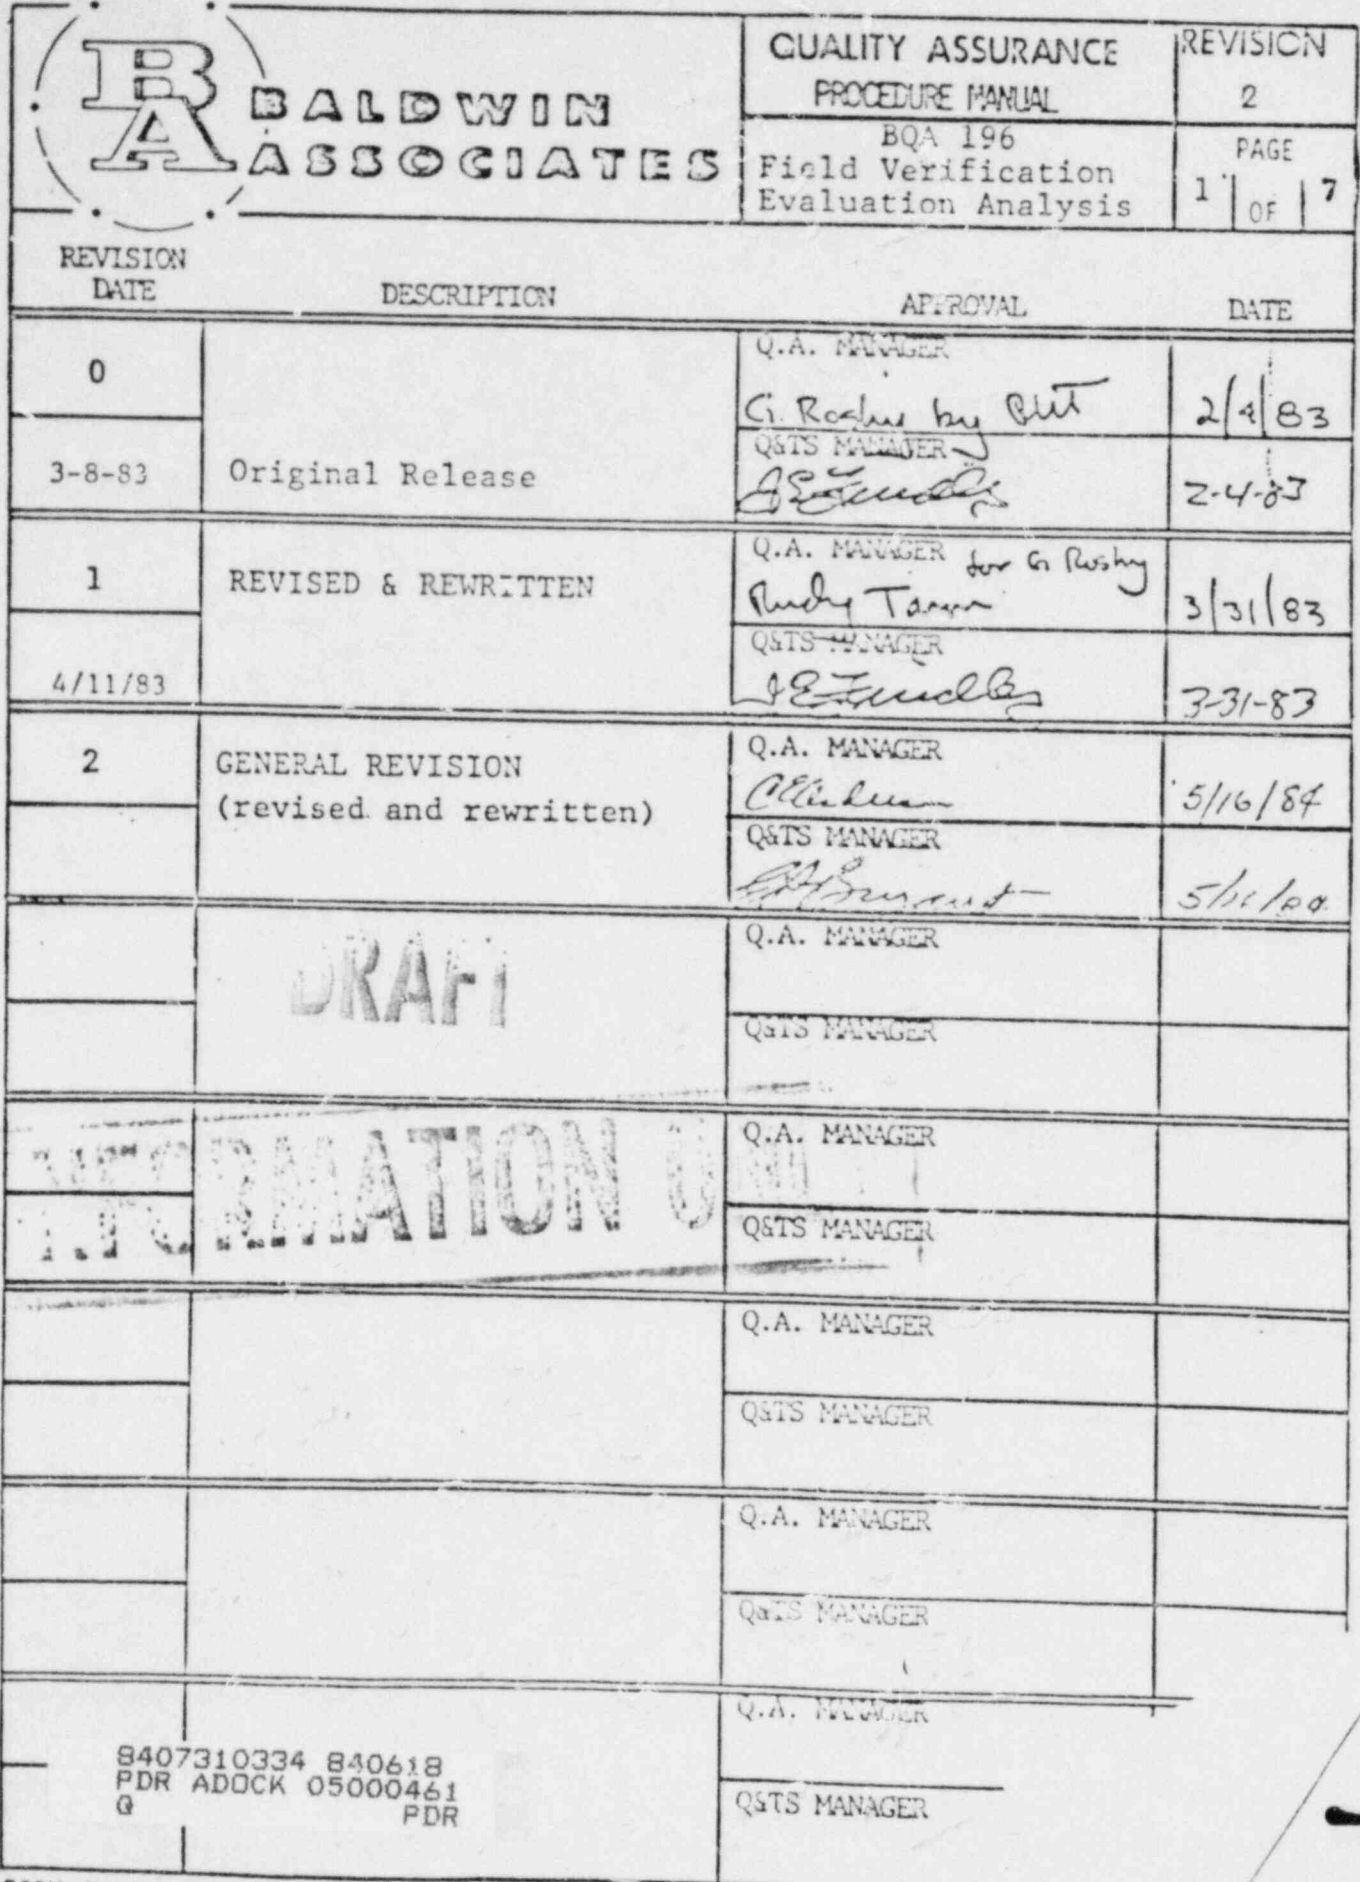 BA
BALDWIN
ASSOCIATES
QUALITY ASSURANCE
PROCEDURE MANUAL
REVISION
2
BQA 196
Field Verification
Evaluation Analysis
PAGE
1 OF 7
REVISION
DATE
DESCRIPTION
APPROVAL
DATE
0
Q.A. MANAGER
by
2/4/83
3-8-83
Original Release
Q&TS MANAGER
2-4-83
1
REVISED & REWRITTEN
Q.A. MANAGER for G Rosby
Rudy
3/31/83
4/11/83
Q&TS MANAGER
3-31-83
2
GENERAL REVISION
(revised and rewritten)
Q.A. MANAGER
5/16/84
Q&TS MANAGER
DRAFT
Q.A. MANAGER
Q&TS MANAGER
INFORMATION
Q.A. MANAGER
Q&TS MANAGER
Q.A. MANAGER
Q&TS MANAGER
Q.A. MANAGER
Q&TS MANAGER
Q.A. MANAGER
Q&TS MANAGER
8407310334 840618
PDR ADOCK 05000461
Q PDR